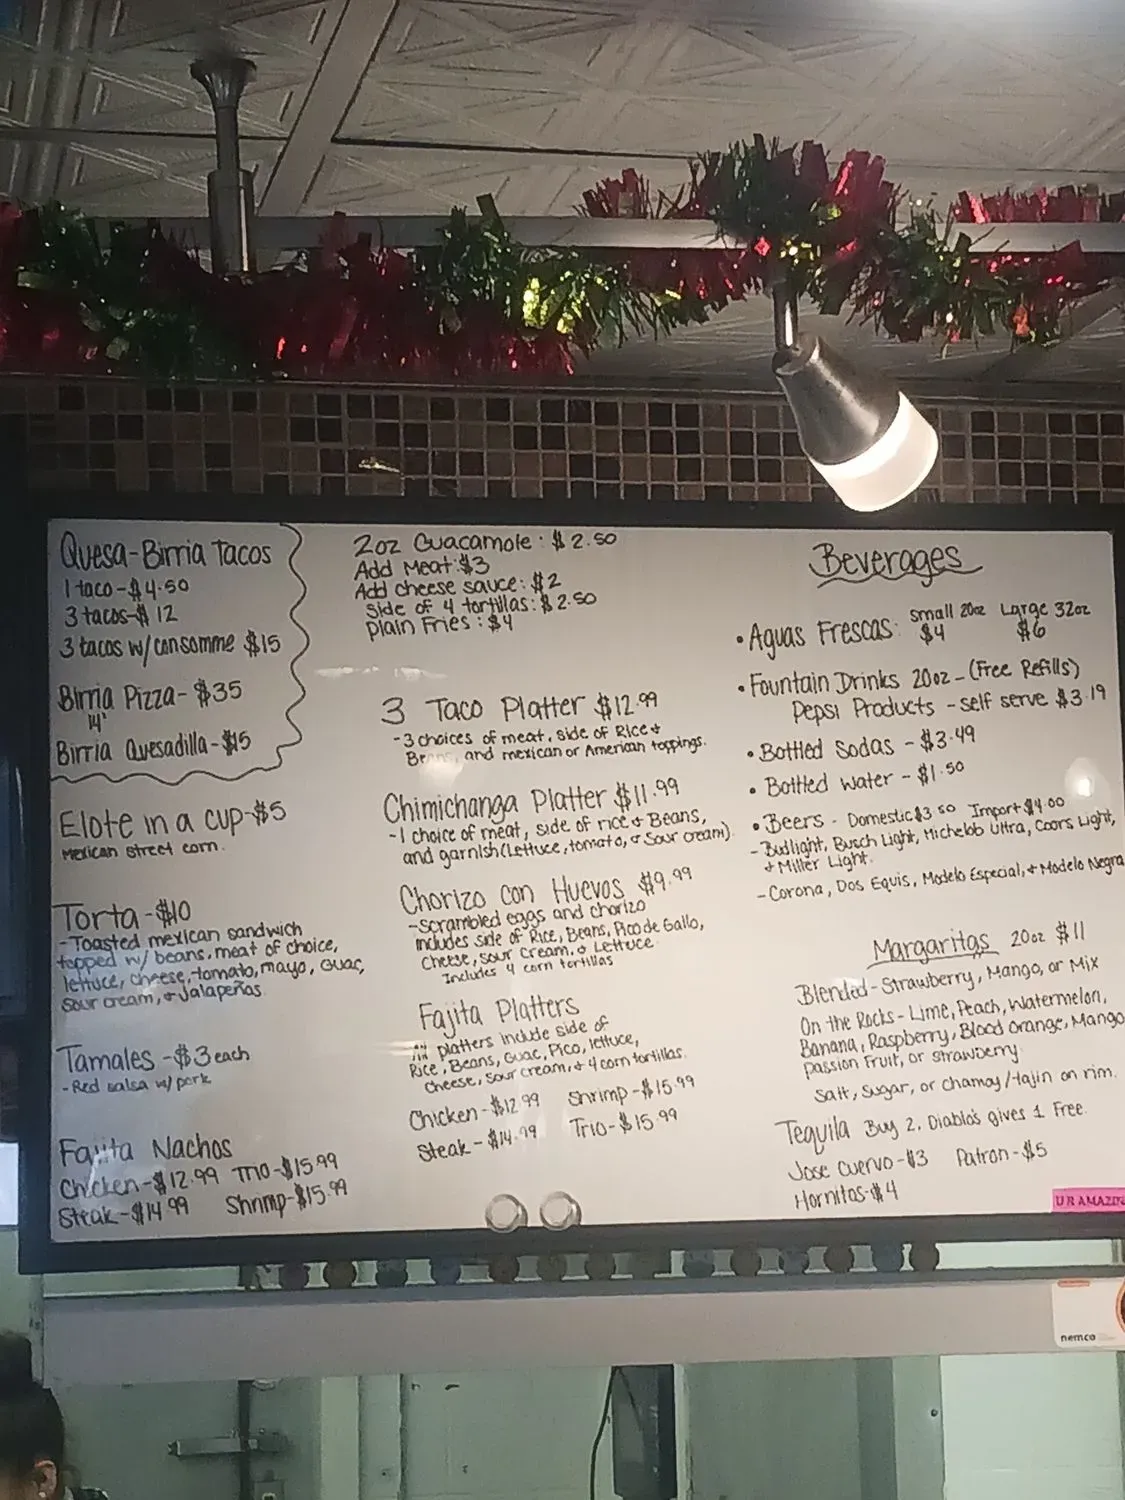 Quesa-Birria Tacos
1 taco-$4.50
3 tacos-$12
3 tacos w/consomme $15
Birria Pizza-$35
14"
Birria Quesadilla-$15
Elote in a cup-$5
Mexican street corn.
Torta-$10
-Toasted mexican sandwich
topped w/ beans, meat of choice,
lettuce, cheese, tomato, mayo, Guac,
Sour cream, & Jalapeñas.
Tamales -$3 each
-Red salsa w/ pork
Fajita Nachos
Chicken-$12.99 Trio-$15.99
Steak-$14.99 Shrimp-$15.99
2oz Guacamole: $2.50
Add Meat:$3
Add cheese sauce: $2
Side of 4 tortillas: $2.50
Plain Fries: $4
3 Taco Platter $12.99
-3 choices of meat, side of Rice &
Beans, and mexican or American toppings.
Chimichanga Platter $11.99
-1 choice of meat, side of rice & Beans,
and garnish (Lettuce, tomato, & Sour cream)
Chorizo con Huevos $9.99
-Scrambled eggs and chorizo
includes side of Rice, Beans, Pico de Gallo,
Cheese, Sour Cream, & Lettuce.
Includes 4 corn tortillas
Fajita Platters
All platters include side of
Rice, Beans, Guac, Pico, lettuce,
cheese, sour cream, & 4 corn tortillas.
Chicken-$12.99 Shrimp-$15.99
Steak-$14.99 Trio-$15.99
Beverages
• Aguas Frescas: Small 20oz Large 32oz
$4 $6
• Fountain Drinks 20oz-(Free Refills)
Pepsi Products - self serve $3.19
• Bottled Sodas - $3.49
• Bottled Water - $1.50
• Beers - Domestic $3.50 Import $4.00
- Budlight, Busch Light, Michelob Ultra, Coors Light,
& Miller Light.
- Corona, Dos Equis, Modelo Especial, & Modelo Negra
Margaritas 20oz $11
Blended-Strawberry, Mango, or Mix
On the Rocks-Lime, Peach, Watermelon,
Banana, Raspberry, Blood Orange, Mango
passion Fruit, or Strawberry.
Salt, Sugar, or Chamoy/tajin on rim.
Tequila Buy 2, Diablo's gives 1 Free.
Jose Cuervo-$3 Patron-$5
Hornitos-$4
U R AMAZIN
nemco